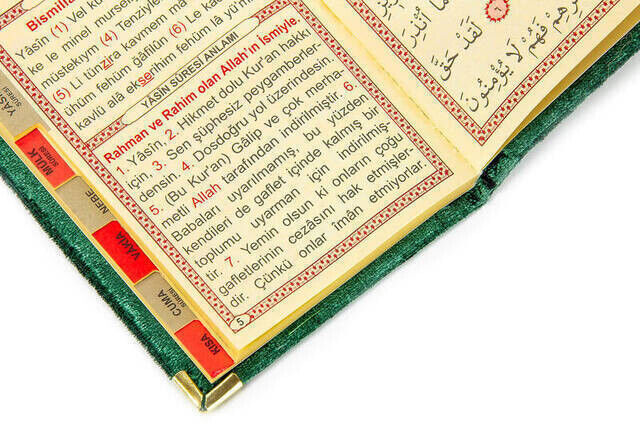 Bismilla
Yâsîn (1) Vel kur
ke le minel murselîn
müstekıym (4) Tenziyle
(5) Li tünzira kavmem mâ
ühüm fehüm ğâfilûn (6) Le kad
kavlü alâ ekserihim fehüm lâ yü'm
YÂSÎN SÛRESİ ANLAMI
Rahman ve Rahim olan Allah'ın İsmiyle.
1. Yâsîn, 2. Hikmet dolu Kur'an hakkı
için, 3. Sen şüphesiz peygamberler-
densin. 4. Dosdoğru yol üzerindesin.
5. (Bu Kur'an) Gâlip ve çok merha-
metli Allah tarafından indirilmiştir. 6.
Babaları uyarılmamış, bu yüzden
kendileri de gaflet içinde kalmış bir
toplumu uyarman için indirilmiş-
tir. 7. Yemin olsun ki onların çoğu
gafletlerinin cezâsını hak etmişler-
dir. Çünkü onlar îmân etmiyorlar.
5
YÂSÎN
SÛRESİ
MÜLK
SÛRESİ
NEBE
VÂKIA
CUMA
SÛRESİ
KISA
لَقَدْ حَقَّ
فَهُمْ لَا يُؤْمِنُونَ
٦